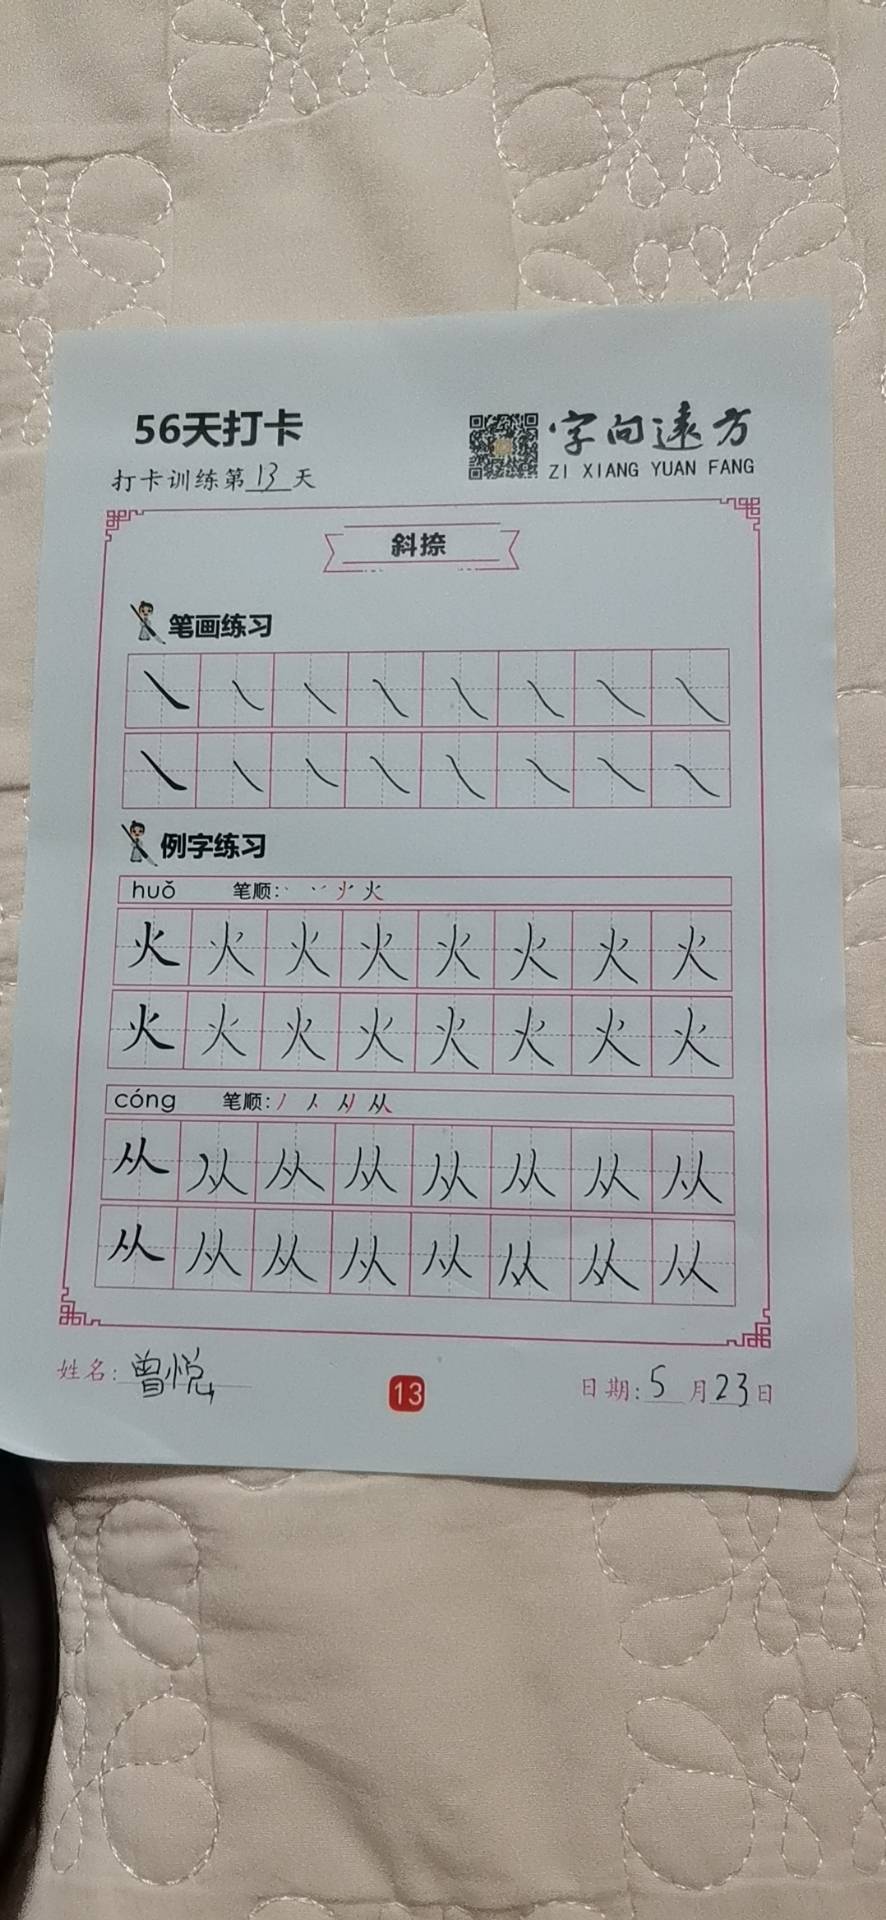 56天打卡
字向远方
ZI XIANG YUAN FANG
打卡训练第13天
斜捺
笔画练习
㇏ ㇏ ㇏ ㇏ ㇏ ㇏ ㇏ ㇏
㇏ ㇏ ㇏ ㇏ ㇏ ㇏ ㇏ ㇏
例字练习
huǒ 笔顺: 火
火 火 火 火 火 火 火 火
火 火 火 火 火 火 火 火
cóng 笔顺: 丿 人 从
从 从 从 从 从 从 从 从
从 从 从 从 从 从 从 从
姓名: 曾悦
13
日期: 5月23日